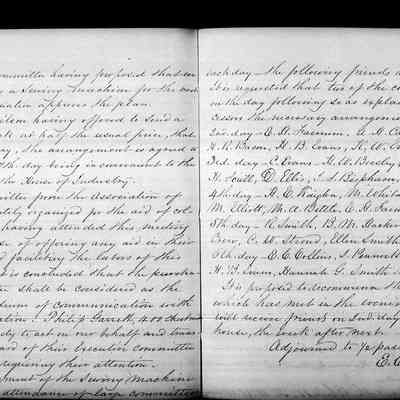 ommittee having proposed that on
a Sewing Machine for the
ciation approves the plan.
tlem having offered to send a
at half the usual price, that
ay, the arrangement is agreed a
th day being in covenant to the
the House of Industry.
mittee from the Association of
ately organized for the aid of col-
having attended this meeting
of offering any aid in their
facilitate the labors of this
is concluded that the
shall be considered as the
dium of communication with
ation. Philip Garrett, 400 Chestnut
to act in our behalf and
ard of their Executive Committee
requiring their attention.
ment of the Sewing Machine
attendance of large committees
each day - the following friends
It is requested that two of the co
on the day following so as explai
cessors the necessary arrangemen
2nd. day - E. H. Farnum, A. H.
H. R. Bacon, H. B. Evans, K. W.
3rd. day - C. Evans - H. W. Beesley,
H. Scull, D. Ellis, S. S. Bispham,
4th day - H. C. Knight, M. White
M. Elliott, M. A. Bettle, E. H. Farn
5th day - R. Smith, B. M. Hacker
C. W. Stroud, Ellen Smith
6th day - E. C. Collins, S. Bennett
H. B. Evans, Hannah G. Smith
It is proposed to discontinue the
which has met in the evening
will receive friends on 2nd. day
house, the week after next.
Adjourned to ½ past
E. C.